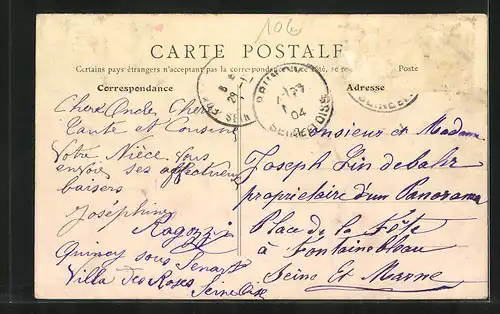 106
CARTE POSTALE
Certains pays étrangers n'acceptant pas la correspondance de ce côté, se re Poste
Correspondance
Adresse
BRUNOY
04
SEINE-ET-OISE
Cher Oncle Chere
Tante et Cousine
Votre Nièce vous
envoie ses affectueux
baisers
Joséphine
Ragozzi
Quincy sous Senart
Villa des Roses
Seine Oise
Monsieur et Madame
Joseph
propriétaire d'un Panorama
Place de la Fête
à Fontainebleau
Seine Et Marne